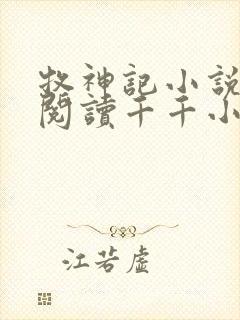 牧神記小說
閱讀千千小
江若虛